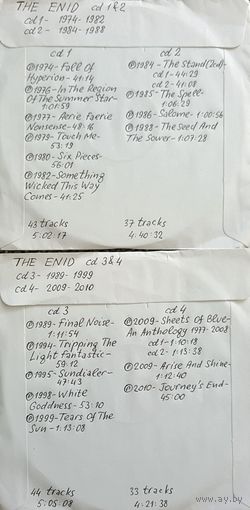 THE ENID cd 1&2
cd 1 - 1974-1982
cd 2 - 1984-1988
cd 1
℗1974-Fall Of
Hyperion-41:14
℗1976-In the Region
Of The Summer Star-
1:01:59
℗1977-Aerie Faerie
Nonsense-48:16
℗1979-Touch Me-
53:19
℗1980-Six Pieces-
56:01
℗1982-Something
Wicked This Way
Comes-41:25
43 tracks
5:02:17
cd 2
℗1984-The Stand(2cd)-
cd 1-44:29
cd 2-41:08
℗1985-The Spell-
1:06:29
℗1986-Salome-1:00:56
℗1988-The Seed And
The Sower-1:07:28
37 tracks
4:40:32
THE ENID cd 3&4
cd 3-1989-1999
cd 4-2009-2010
cd 3
℗1989-Final Noise-
1:11:54
℗1994-Tripping The
Light Fantastic-
59:12
℗1995-Sundialer-
47:43
℗1998-White
Goddness-53:10
℗1999-Tears Of The
Sun-1:13:08
44 tracks
5:05:08
cd 4
℗2009-Sheets Of Blue-
An Anthology 1977-2008
cd 1-1:10:18
cd 2-1:13:38
℗2009-Arise And Shine-
1:12:40
℗2010-Journey's End-
45:00
33 tracks
4:21:38
www.ay.by